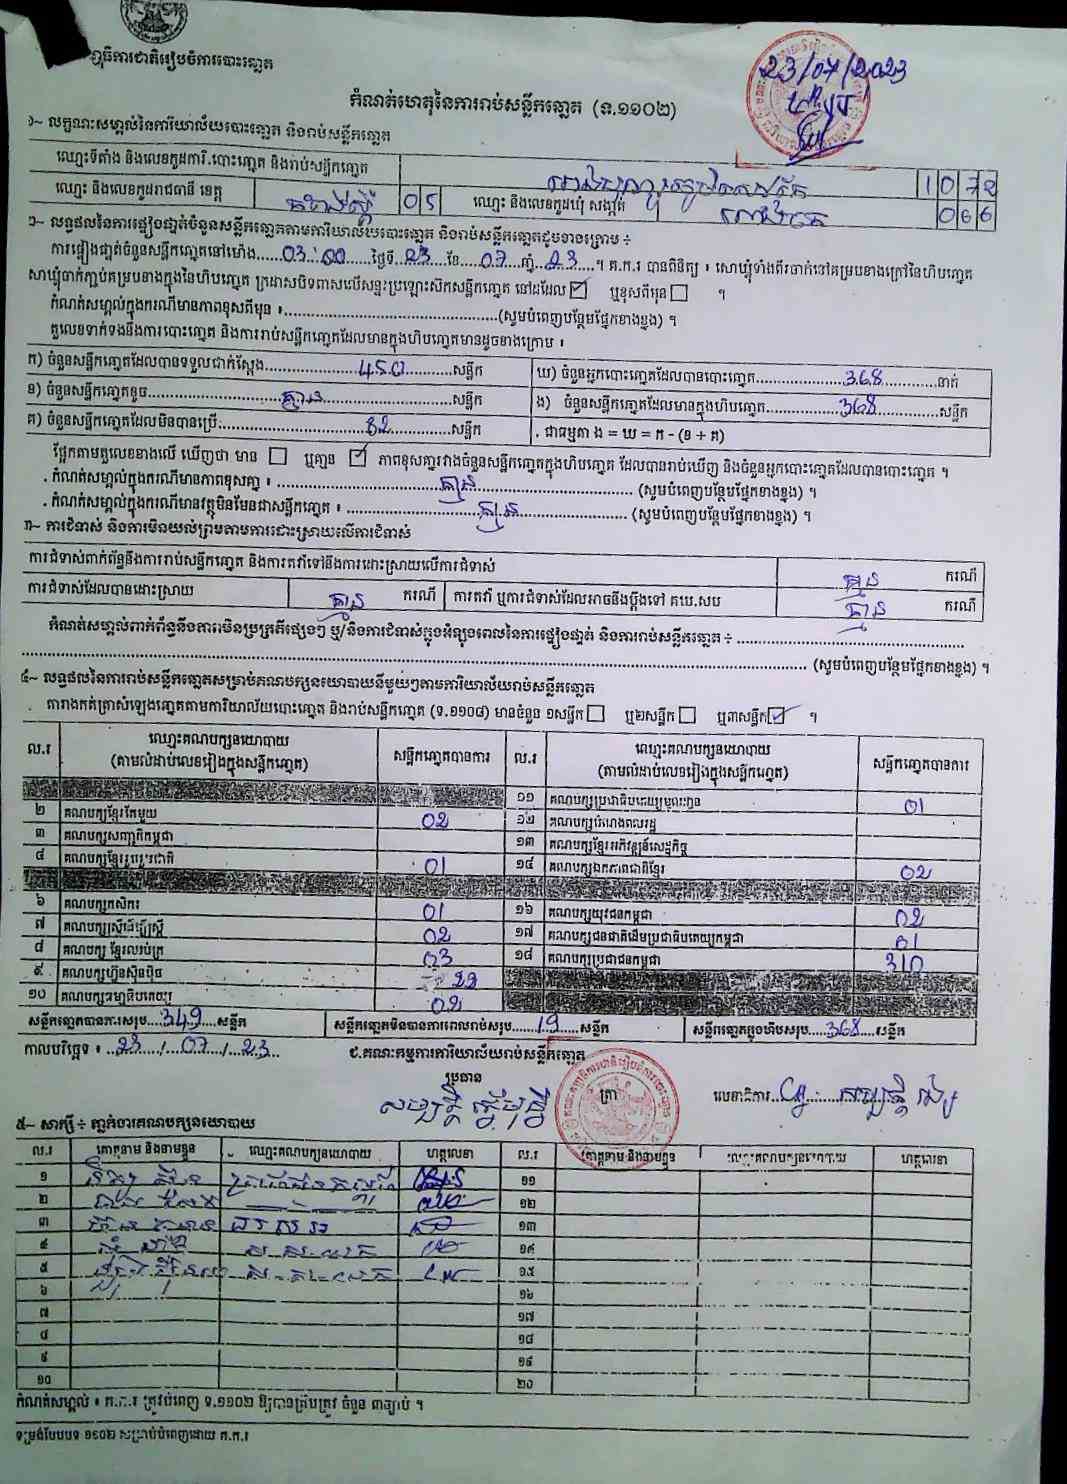 ជាតិរៀបចំការបោះឆ្នោត
23/07/2023
កំណត់ហេតុនៃការរាប់សន្លឹកឆ្នោត (ទ.១១០២)
១~ លក្ខណៈសម្គាល់នៃការិយាល័យបោះឆ្នោត និងរាប់សន្លឹកឆ្នោត
ឈ្មោះទីតាំង និងលេខកូដការិ.បោះឆ្នោត និងរាប់សន្លឹកឆ្នោត 1072
ឈ្មោះ និងលេខកូដរាជធានី ខេត្ត 05 ឈ្មោះ និងលេខកូដឃុំ សង្កាត់ 066
២~ លទ្ធផលនៃការផ្ទៀងផ្ទាត់ចំនួនសន្លឹកឆ្នោតតាមការិយាល័យបោះឆ្នោត និងរាប់សន្លឹកឆ្នោតដូចខាងក្រោម ៖
ការផ្ទៀងផ្ទាត់ចំនួនសន្លឹកឆ្នោតនៅម៉ោង 03:00 ថ្ងៃទី 23 ខែ 07 ឆ្នាំ 23 ។ គ.ក.រ បានពិនិត្យ ៖ សោឃ្មុំទាំងពីរចាក់នៅគម្របខាងក្រៅនៃហិបឆ្នោត
សោឃ្មុំចាក់ភ្ជាប់គម្របខាងក្នុងនៃហិបឆ្នោត ក្រដាសបិទពាសលើសន្ទះប្រឡោះសឹកសន្លឹកឆ្នោត នៅដដែល ☑ ឬខុសពីមុន ☐ ។
កំណត់សម្គាល់ក្នុងករណីមានភាពខុសពីមុន ៖ (សូមបំពេញបន្ថែមផ្នែកខាងខ្នង) ។
តួលេខទាក់ទងនឹងការបោះឆ្នោត និងការរាប់សន្លឹកឆ្នោតដែលមានក្នុងហិបឆ្នោតមានដូចខាងក្រោម ៖
ក) ចំនួនសន្លឹកឆ្នោតដែលបានទទួលជាក់ស្តែង 450 សន្លឹក ឃ) ចំនួនអ្នកបោះឆ្នោតដែលបានបោះឆ្នោត 368 នាក់
ខ) ចំនួនសន្លឹកឆ្នោតខូច គ្មាន សន្លឹក ង) ចំនួនសន្លឹកឆ្នោតដែលមានក្នុងហិបឆ្នោត 368 សន្លឹក
គ) ចំនួនសន្លឹកឆ្នោតដែលមិនបានប្រើ 82 សន្លឹក . ជាធម្មតា ង = ឃ = ក - (ខ + គ)
ផ្អែកតាមតួលេខខាងលើ ឃើញថា មាន ☐ ឬគ្មាន ☑ ភាពខុសគ្នារវាងចំនួនសន្លឹកឆ្នោតក្នុងហិបឆ្នោត ដែលបានរាប់ឃើញ និងចំនួនអ្នកបោះឆ្នោតដែលបានបោះឆ្នោត ។
. កំណត់សម្គាល់ក្នុងករណីមានភាពខុសគ្នា ៖ គ្មាន (សូមបំពេញបន្ថែមផ្នែកខាងខ្នង) ។
. កំណត់សម្គាល់ក្នុងករណីមានវត្ថុមិនមែនជាសន្លឹកឆ្នោត ៖ គ្មាន (សូមបំពេញបន្ថែមផ្នែកខាងខ្នង) ។
៣~ ការជំទាស់ និងការមិនយល់ព្រមតាមការដោះស្រាយលើការជំទាស់
ការជំទាស់ពាក់ព័ន្ធនឹងការរាប់សន្លឹកឆ្នោត និងការតវ៉ាទៅនឹងការដោះស្រាយលើការជំទាស់ គ្មាន ករណី
ការជំទាស់ដែលបានដោះស្រាយ គ្មាន ករណី ការតវ៉ា ឬការជំទាស់ដែលអាចនឹងប្តឹងទៅ គឃ.សប គ្មាន ករណី
កំណត់សម្គាល់ពាក់ព័ន្ធនឹងភាពមិនប្រក្រតីផ្សេងៗ ឬ/និងការជំទាស់ក្នុងអំឡុងពេលនៃការផ្ទៀងផ្ទាត់ និងការរាប់សន្លឹកឆ្នោត ៖
(សូមបំពេញបន្ថែមផ្នែកខាងខ្នង) ។
៤~ លទ្ធផលនៃការរាប់សន្លឹកឆ្នោតសម្រាប់គណបក្សនយោបាយនីមួយៗតាមការិយាល័យរាប់សន្លឹកឆ្នោត
តារាងកត់ត្រាសំឡេងឆ្នោតតាមការិយាល័យបោះឆ្នោត និងរាប់សន្លឹកឆ្នោត (ទ.១១០៨) មានចំនួន ១សន្លឹក ☐ ឬ២សន្លឹក ☐ ឬ៣សន្លឹក ☑ ។
ល.រ ឈ្មោះគណបក្សនយោបាយ (តាមលំដាប់លេខរៀងក្នុងសន្លឹកឆ្នោត) សន្លឹកឆ្នោតបានការ ល.រ ឈ្មោះគណបក្សនយោបាយ (តាមលំដាប់លេខរៀងក្នុងសន្លឹកឆ្នោត) សន្លឹកឆ្នោតបានការ
១១ គណបក្សប្រជាធិបតេយ្យមូលដ្ឋាន 01
២ គណបក្សខ្មែរតែមួយ 02 ១២ គណបក្សបំណងពលរដ្ឋ
៣ គណបក្សសញ្ជាតិកម្ពុជា ១៣ គណបក្សខ្មែរអភិវឌ្ឍន៍សេដ្ឋកិច្ច
៤ គណបក្សខ្មែររួបរួមជាតិ 01 ១៤ គណបក្សឯកភាពជាតិខ្មែរ 02
៦ គណបក្សកសិករ 01 ១៦ គណបក្សយុវជនកម្ពុជា 02
៧ គណបក្សស្ត្រីដើម្បីស្ត្រី 02 ១៧ គណបក្សជនជាតិដើមប្រជាធិបតេយ្យកម្ពុជា 01
៨ គណបក្ស ខ្មែរឈប់ក្រ 03 ១៨ គណបក្សប្រជាជនកម្ពុជា 310
៩ គណបក្សហ្វ៊ុនស៊ិនប៉ិច 22
១០ គណបក្សធម្មាធិបតេយ្យ 02
សន្លឹកឆ្នោតបានការសរុប 349 សន្លឹក សន្លឹកឆ្នោតមិនបានការពេលរាប់សរុប 19 សន្លឹក សន្លឹកឆ្នោតក្នុងហិបសរុប 368 សន្លឹក
កាលបរិច្ឆេទ ៖ 23/07/23 ជ.គណៈកម្មការការិយាល័យរាប់សន្លឹកឆ្នោត
ប្រធាន ត្រា លេខាធិការ
៥~ សាក្សី ៖ ភ្នាក់ងារគណបក្សនយោបាយ
ល.រ គោត្តនាម និងនាមខ្លួន ឈ្មោះគណបក្សនយោបាយ ហត្ថលេខា ល.រ គោត្តនាម និងនាមខ្លួន ឈ្មោះគណបក្សនយោបាយ ហត្ថលេខា
១ ១១
២ ១២
៣ ១៣
៤ ១៤
៥ ១៥
៦ ១៦
៧ ១៧
៨ ១៨
៩ ១៩
១០ ២០
កំណត់សម្គាល់ ៖ គ.ក.រ ត្រូវបំពេញ ទ.១១០២ ឱ្យបានត្រឹមត្រូវ ចំនួន ៣ច្បាប់ ។
ទម្រង់បែបបទ ១១០២ សម្រាប់បំពេញដោយ គ.ក.រ